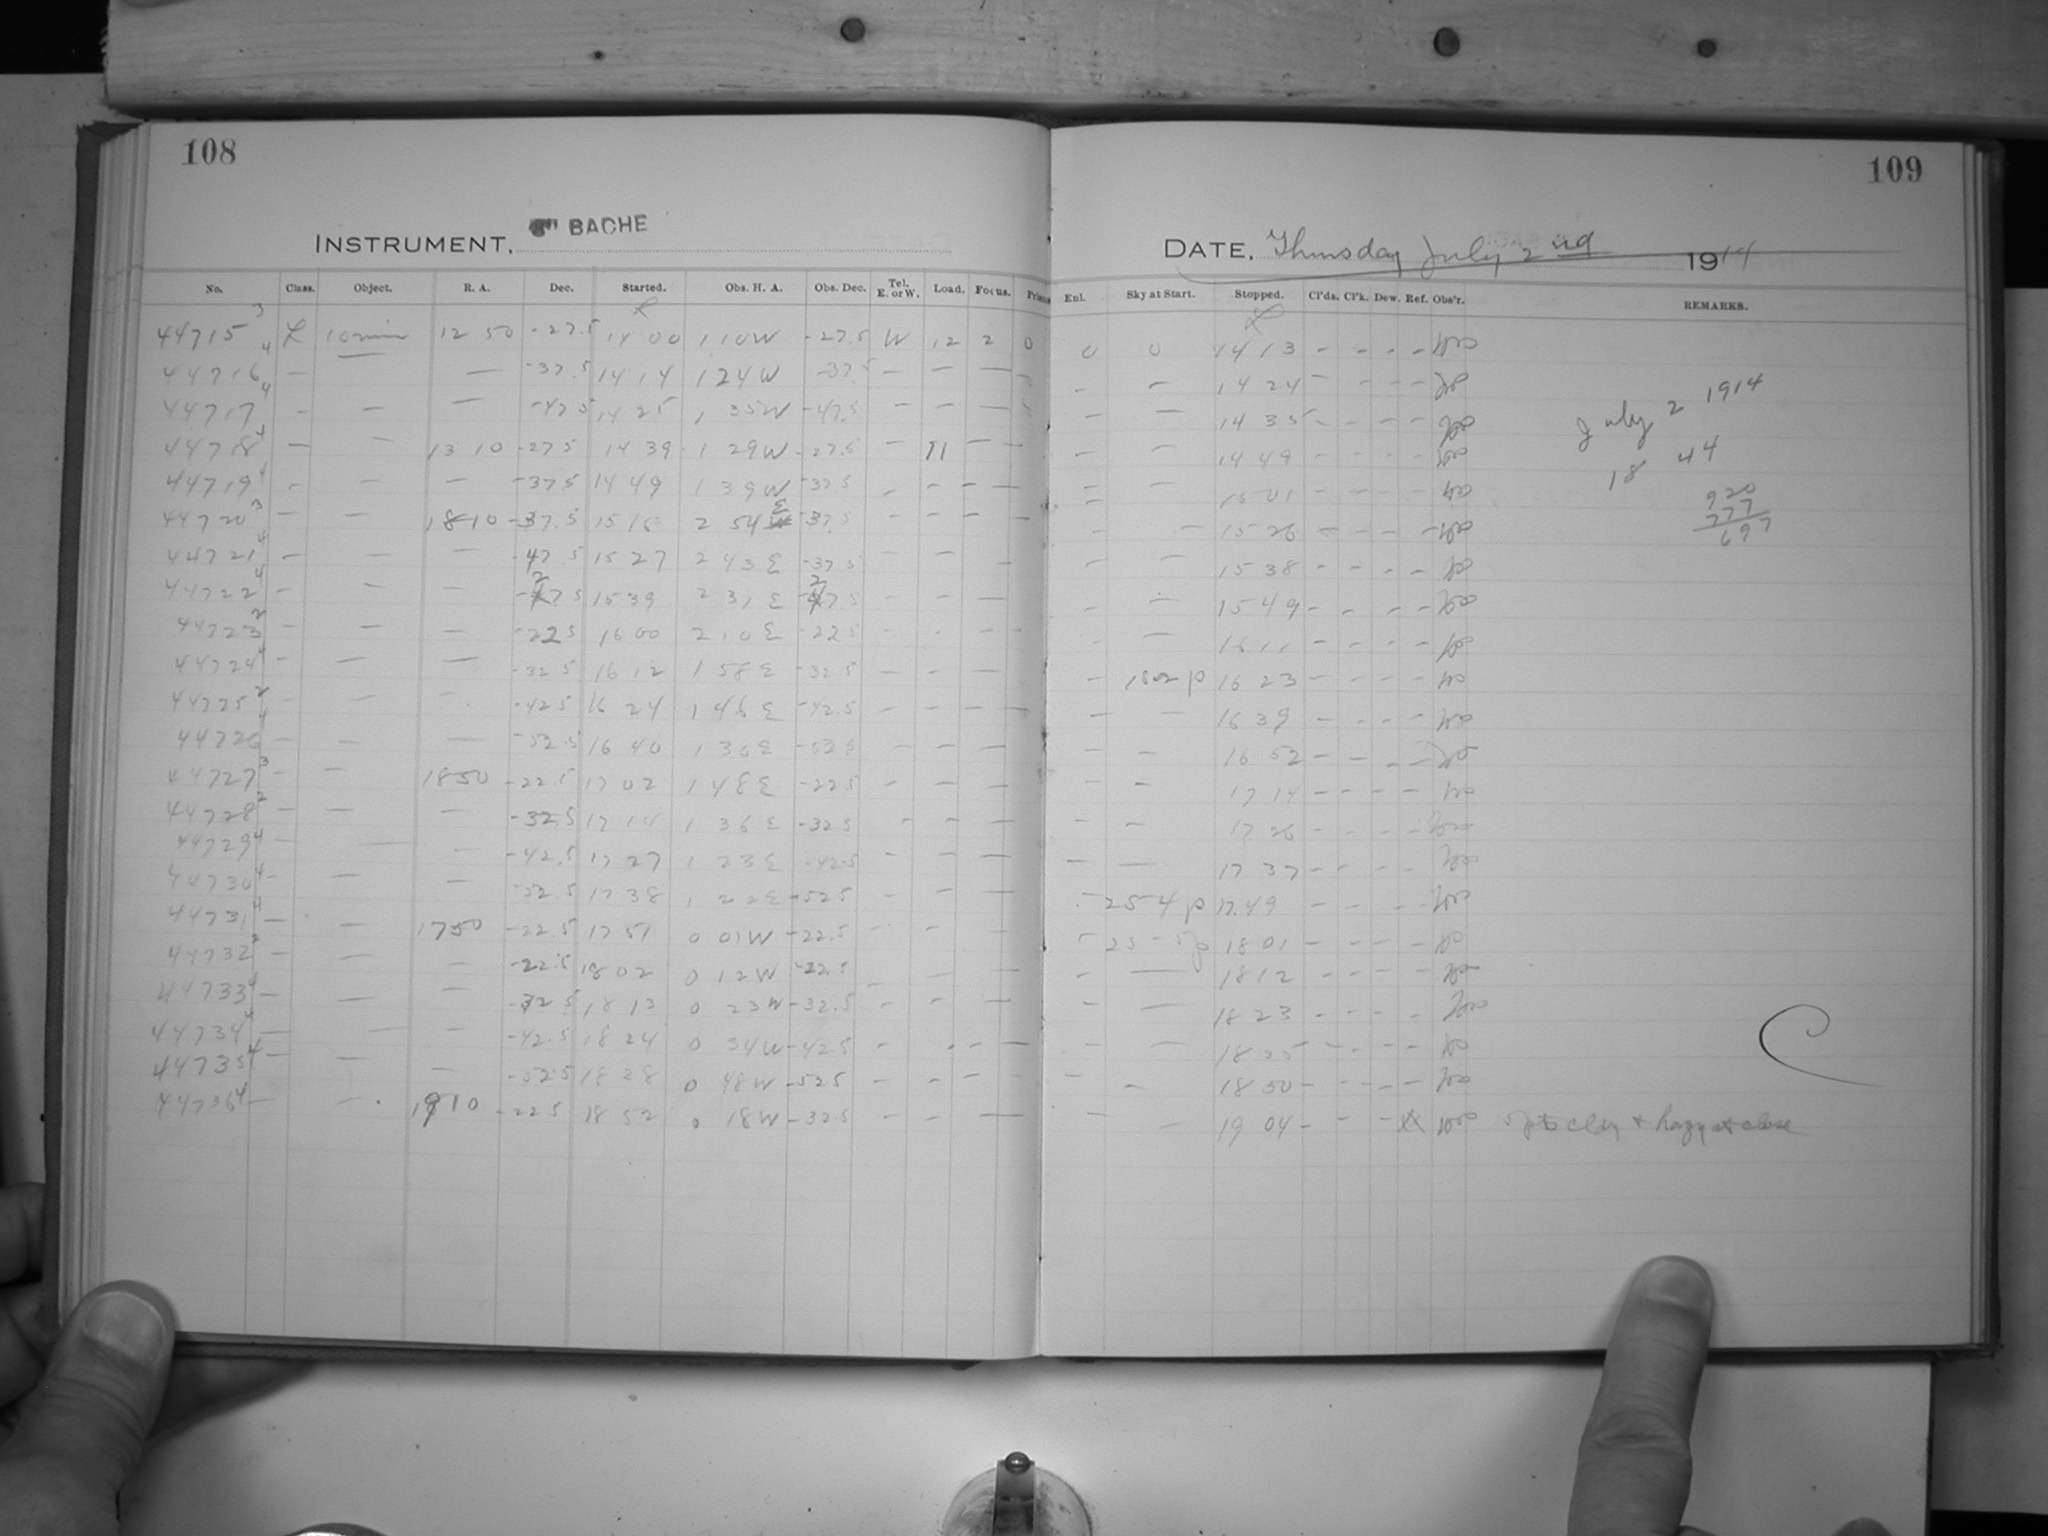 108
109
INSTRUMENT, 8" BACHE
DATE, Thursday July 2nd 1914
No. Class. Object. R. A. Dec. Started. Obs. H. A. Obs. Dec. Tel. E. or W. Load. Focus. Enl. Sky at Start. Stopped. Cl'ds. Cl'k. Dew. Ref. Obs'r. REMARKS.
44715 3 L 10 min 12 50 -27.5 14 00 1 10 W -27.5 W 12 2 0 0 0 14 13 - - - -
44716 4 — — -37.5 14 14 1 24 W -37.5 — — — - — 14 24 - - - -
44717 4 - — — -47.5 14 25 1 35 W -47.5 - - — — — 14 35 - - - -
44718 4 — — 13 10 -27.5 14 39 1 29 W -27.5 - 11 — — — — 14 49 - - - -
44719 4 - — — -37.5 14 49 1 39 W -37.5 - - - — — — 15 01 - - - -
44720 3 - — 18 10 -37.5 15 16 2 54 E -37.5 - — 15 26 - - - -
44721 4 — — — -47.5 15 27 2 43 E -37.5 - — — — 15 38 - - - -
44722 4 - — — -27.5 15 39 2 31 E -27.5 - - — - — 15 49 - - - -
44723 2 - — — -22.5 16 00 2 10 E -22.5 - - — - — 16 11 - - - -
44724 4 - — — -32.5 16 12 1 58 E -32.5 - - — - 1502 p 16 23 - - - -
44725 2 - — - -42.5 16 24 1 46 E -42.5 - - — — — 16 39 - - - -
44726 4 — — — -52.5 16 40 1 30 E -52.5 - - — — — 16 52 - - - -
44727 3 - — 18 50 -22.5 17 02 1 48 E -22.5 - - — - - 17 14 - - - -
44728 2 - — — -32.5 17 14 1 36 E -32.5 - - — - — 17 26 - - - -
44729 4 — — — -42.5 17 27 1 23 E -42.5 - - — — — 17 37 - - - -
44730 4 - — — -52.5 17 38 1 22 E -52.5 - - — - 25 4 p 17 49 - - - -
44731 4 — — 17 50 -22.5 17 51 0 01 W -22.5 - - — - 18 01 - - - -
44732 2 - — — -22.5 18 02 0 12 W -22.5 - — — - — 18 12 - - - -
44733 4 — — — -32.5 18 13 0 23 W -32.5 - - — - — 18 23 - - - -
44734 4 — — — -42.5 18 24 0 34 W -42.5 - - - — — — 18 35 - - - -
44735 4 — — — -52.5 18 38 0 48 W -52.5 - - - — — - 18 50 - - - -
44736 4 — — 19 10 -22.5 18 52 0 18 W -32.5 - - — — 19 04 - - - hazy at close
July 2 1914
18 44
920
777
697